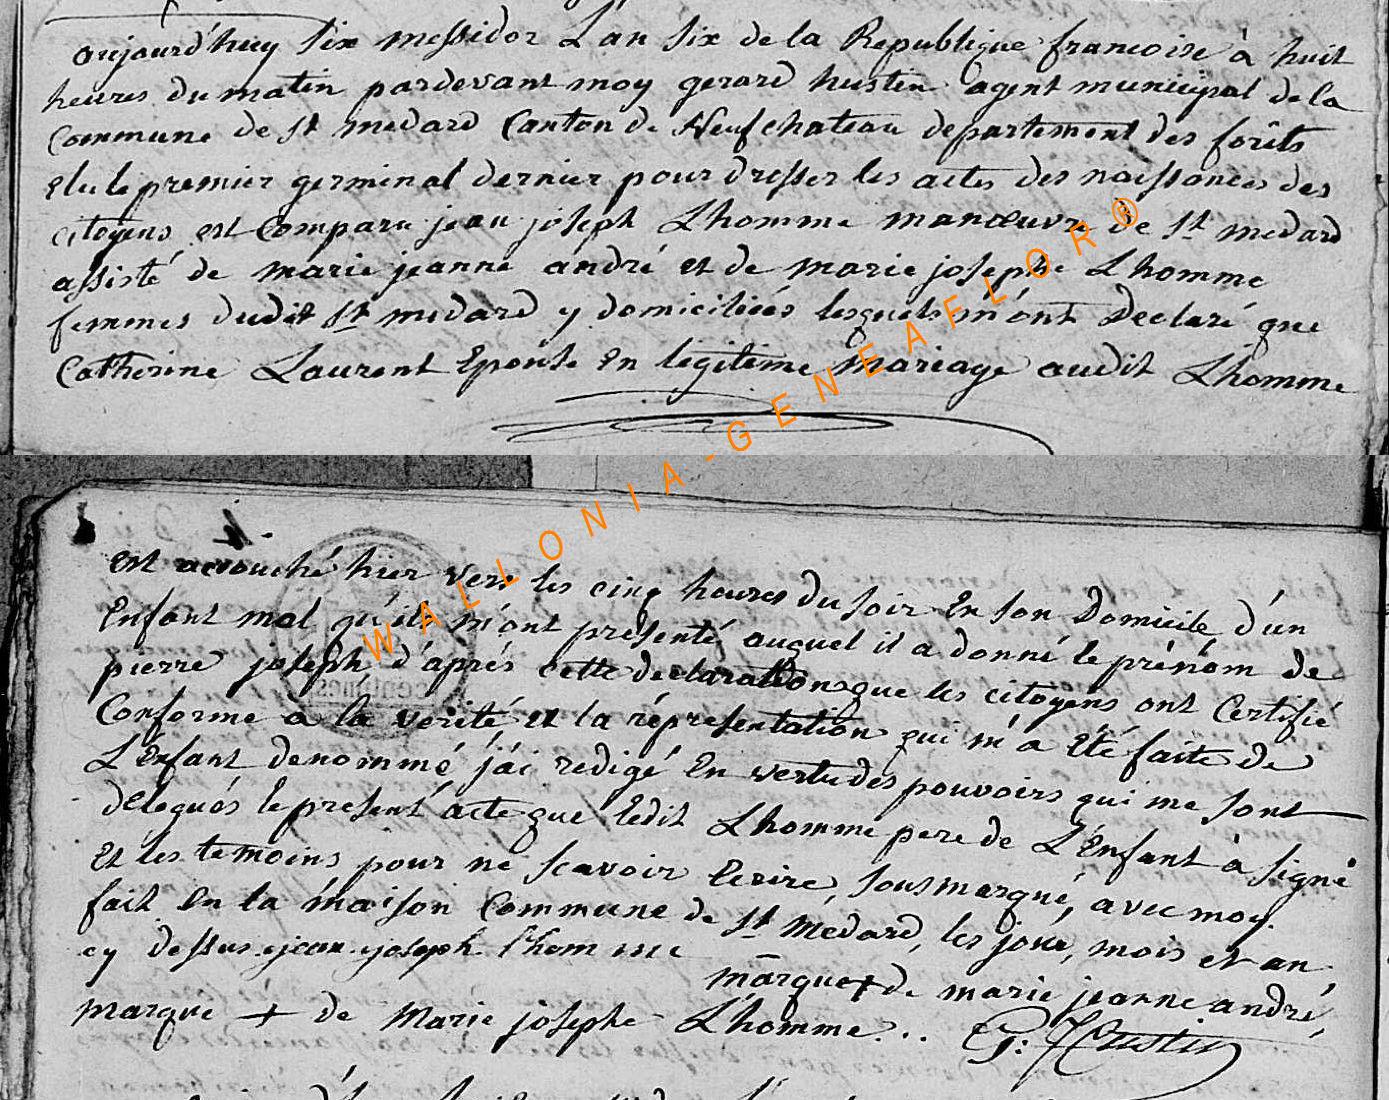 aujourd'huy six messidor L'an six de la Republique francoise à huit
heures du matin pardevant moy gerard hustin agent municipal de la
Commune de St medard Canton de Neufchateau departement des forêts
elu le premier germinal dernier pour dresser les actes des naissances des
citoyens est Comparu jean joseph Lhomme manœuvre de St medard
assisté de marie jeanne andré et de marie josephe Lhomme
femmes dudit St medard y domiciliées lesquels m'ont Declaré que
Catherine Laurent Epouse En legitime mariage audit Lhomme
est accouché hier vers les cinq heures du soir En son Domicile d'un
Enfant mal qu'ils m'ont presenté auquel il a donné le prénom de
pierre joseph d'aprés cette declaration que les citoyens ont Certifié
Conforme a la verité et la répresentation qui m'a Eté faite de
L'Enfant denommé, j'ai redigé En vertu des pouvoirs qui me sont
delegués le present acte que ledit Lhomme pere de L'Enfant à signé
Et les temoins pour ne scavoir Ecrire, sousmarqué, avec moy.
fait En la maison Commune de St Medard, les jour, mois et an
cy dessus jean joseph l'hom me
marque + de marie jeanne andré,
marque + de Marie josephe Lhomme...
G: Hustin
WALLONIA-GENEAFLOR®